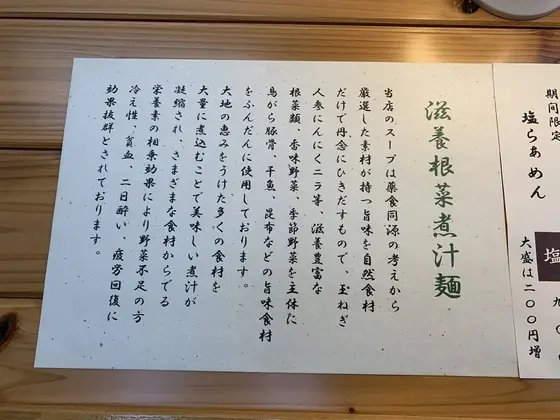 期間限定
塩らあめん
塩
九〇
大盛は二〇〇円増
滋養根菜煮汁麺
当店のスープは薬食同源の考えから
厳選した素材が持つ旨味を自然食材
だけで丹念にひきだすもので、玉ねぎ
人参にんにくニラ等、滋養豊富な
根菜類、香味野菜、季節野菜を主体に
鳥がら豚骨、干魚、昆布などの旨味食材
をふんだんに使用しております。
大地の恵みをうけた多くの食材を
大量に煮込むことで美味しい煮汁が
凝縮され、さまざまな食材からでる
栄養素の相乗効果により野菜不足の方
冷え性、貧血、二日酔い、疲労回復に
効果抜群とされております。